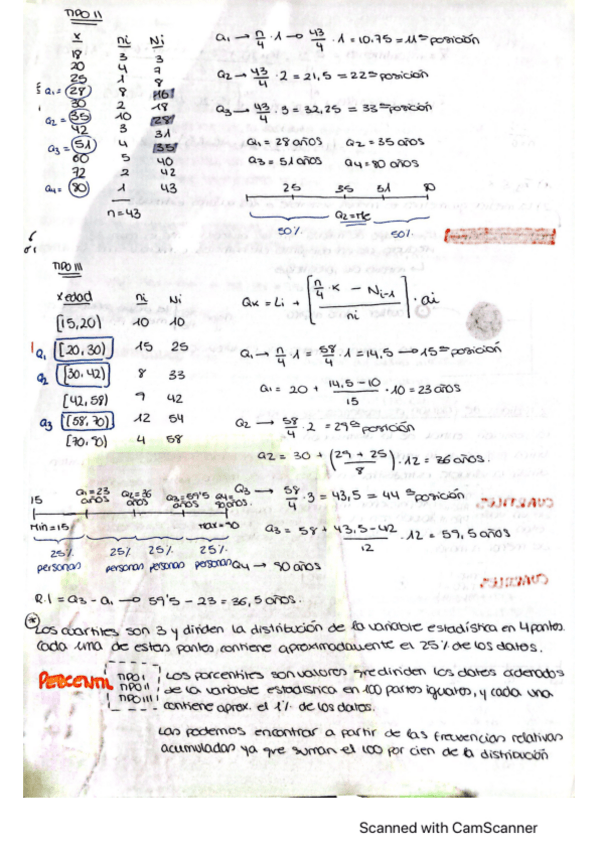 TIPO II
x ni Ni
18 3 3
20 4 7
25 1 8
Q₁ = 28 8 16
30 2 18
Q₂ = 35 10 28
42 3 31
Q₃ = 51 4 35
60 5 40
72 2 42
Q₄ = 80 1 43
n = 43
Q₁ → n/4 · 1 → 43/4 · 1 = 10.75 = 11ª posición
Q₂ → 43/4 · 2 = 21,5 = 22ª posición
Q₃ → 43/4 · 3 = 32,25 = 33ª posición
Q₁ = 28 años Q₂ = 35 años
Q₃ = 51 años Q₄ = 80 años
25 35 51 80
Q₂ = Me
50% 50%
TIPO III
x edad ni Ni
[15,20) 10 10
Q₁ [20,30) 15 25
Q₂ [30,42) 8 33
[42,58) 9 42
Q₃ [58,70) 12 54
[70,90) 4 58
Qk = Li + [n/4 · K − Ni-1 / ni] · ai
Q₁ → n/4 · 1 = 58/4 · 1 = 14,5 → 15ª posición
Q₁ = 20 + 14,5 − 10/15 · 10 = 23 años
Q₂ → 58/4 · 2 = 29ª posición
Q₂ = 30 + (29 + 25/8) · 12 = 36 años.
Q₃ → 58/4 · 3 = 43,5 = 44ª posición
Q₃ = 58 + 43,5 − 42/12 · 12 = 59,5 años
Q₄ → 90 años
15 Q₁ = 23 años Q₂ = 36 años Q₃ = 59'5 años Q₄ = 90 años
Min = 15 max = 90
25% 25% 25% 25%
personas personas personas personas
R.I = Q₃ − Q₁ → 59'5 − 23 = 36,5 años.
* Los cuartiles son 3 y dividen la distribución de la variable estadística en 4 partes.
Cada una de estas partes contiene aproximadamente el 25% de los datos.
PERCENTIL
TIPO I
TIPO II
TIPO III
Los porcentiles son valores que dividen los datos ordenados
de la variable estadística en 100 partes iguales, y cada una
contiene aprox. el 1% de los datos.
Las podemos encontrar a partir de las frecuencias relativas
acumuladas ya que suman el 100 por cien de la distribución
Scanned with CamScanner